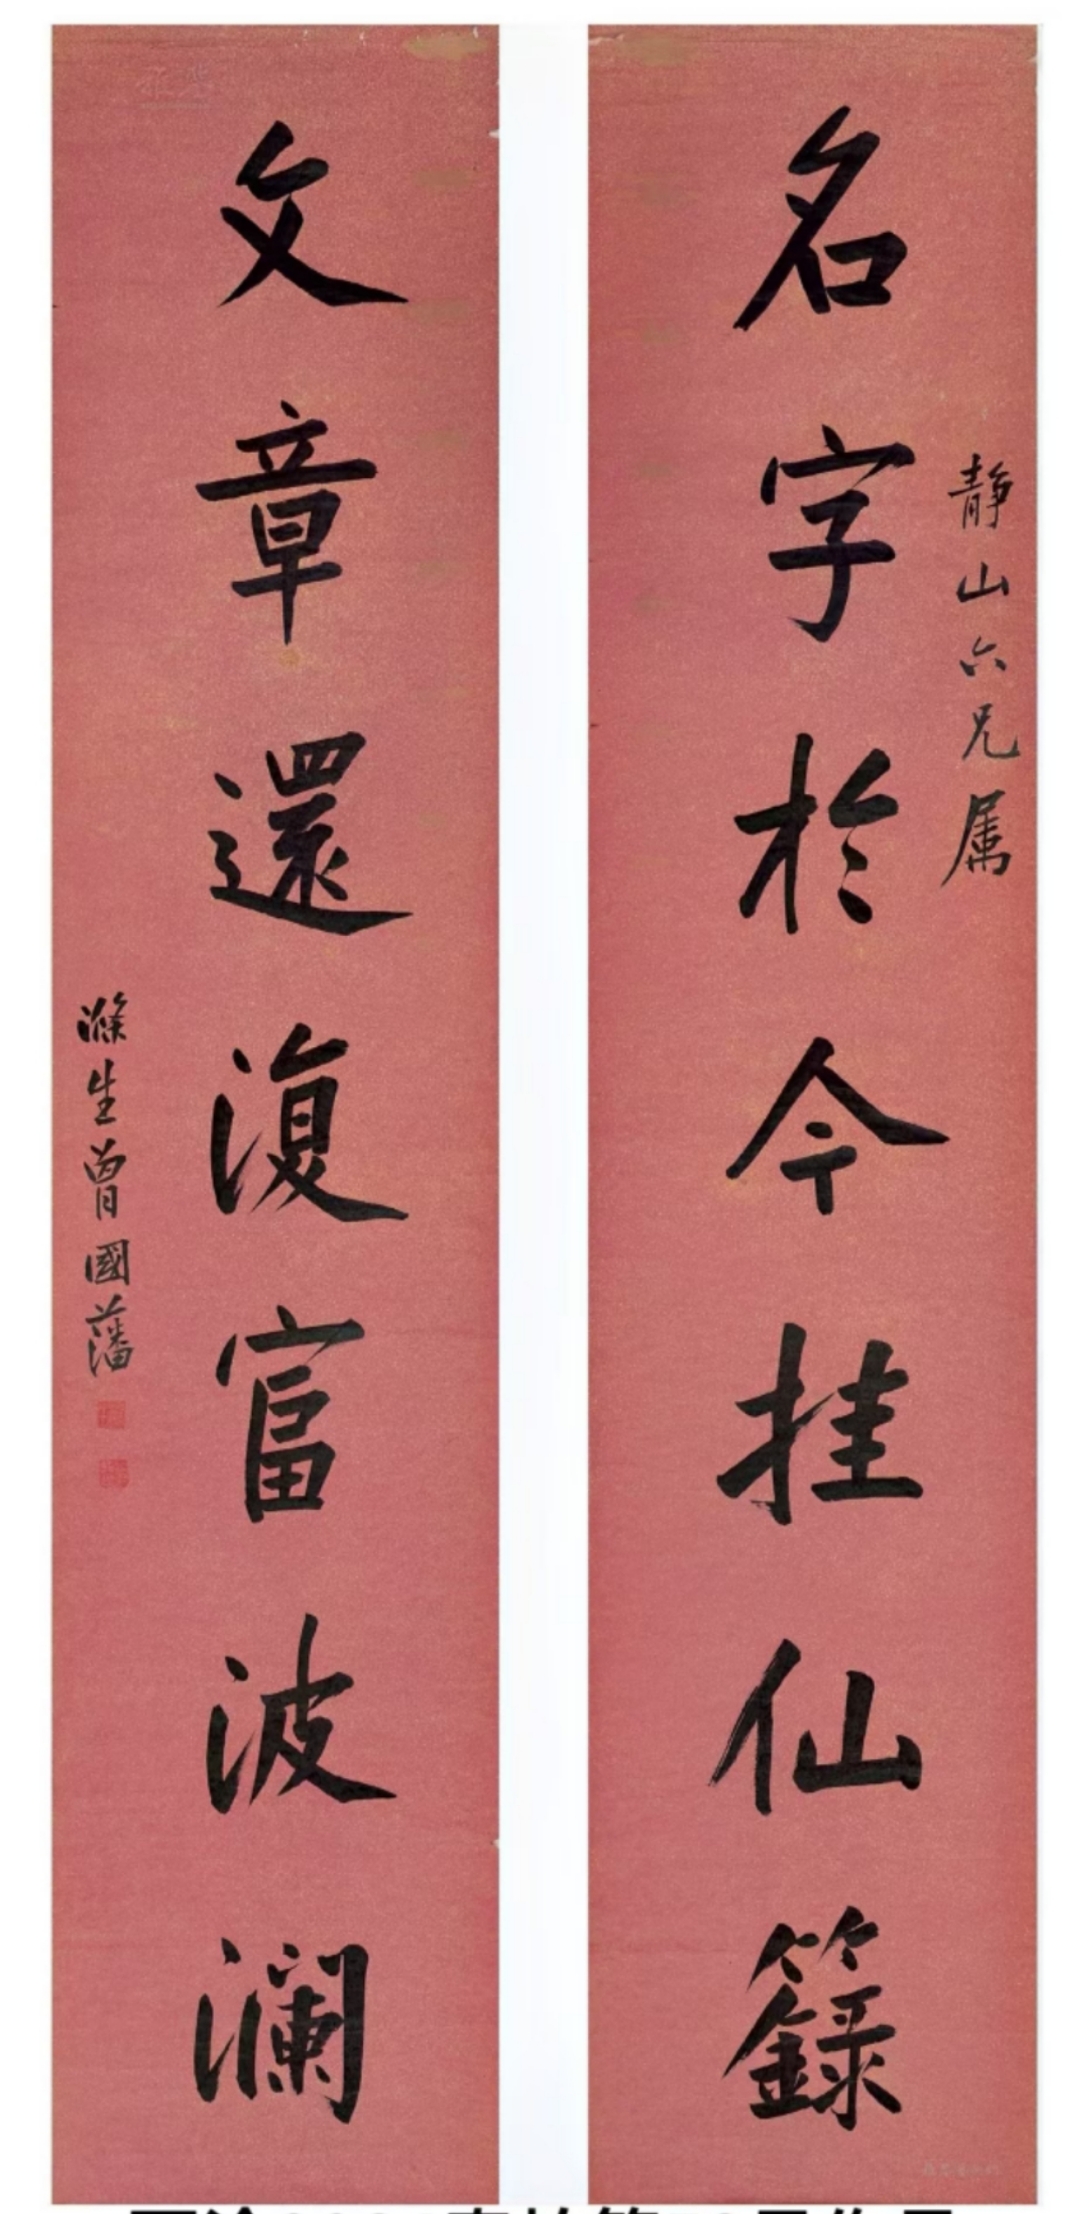 名字於今挂仙籙
静山六兄属
文章還復富波澜
滌生曾國藩